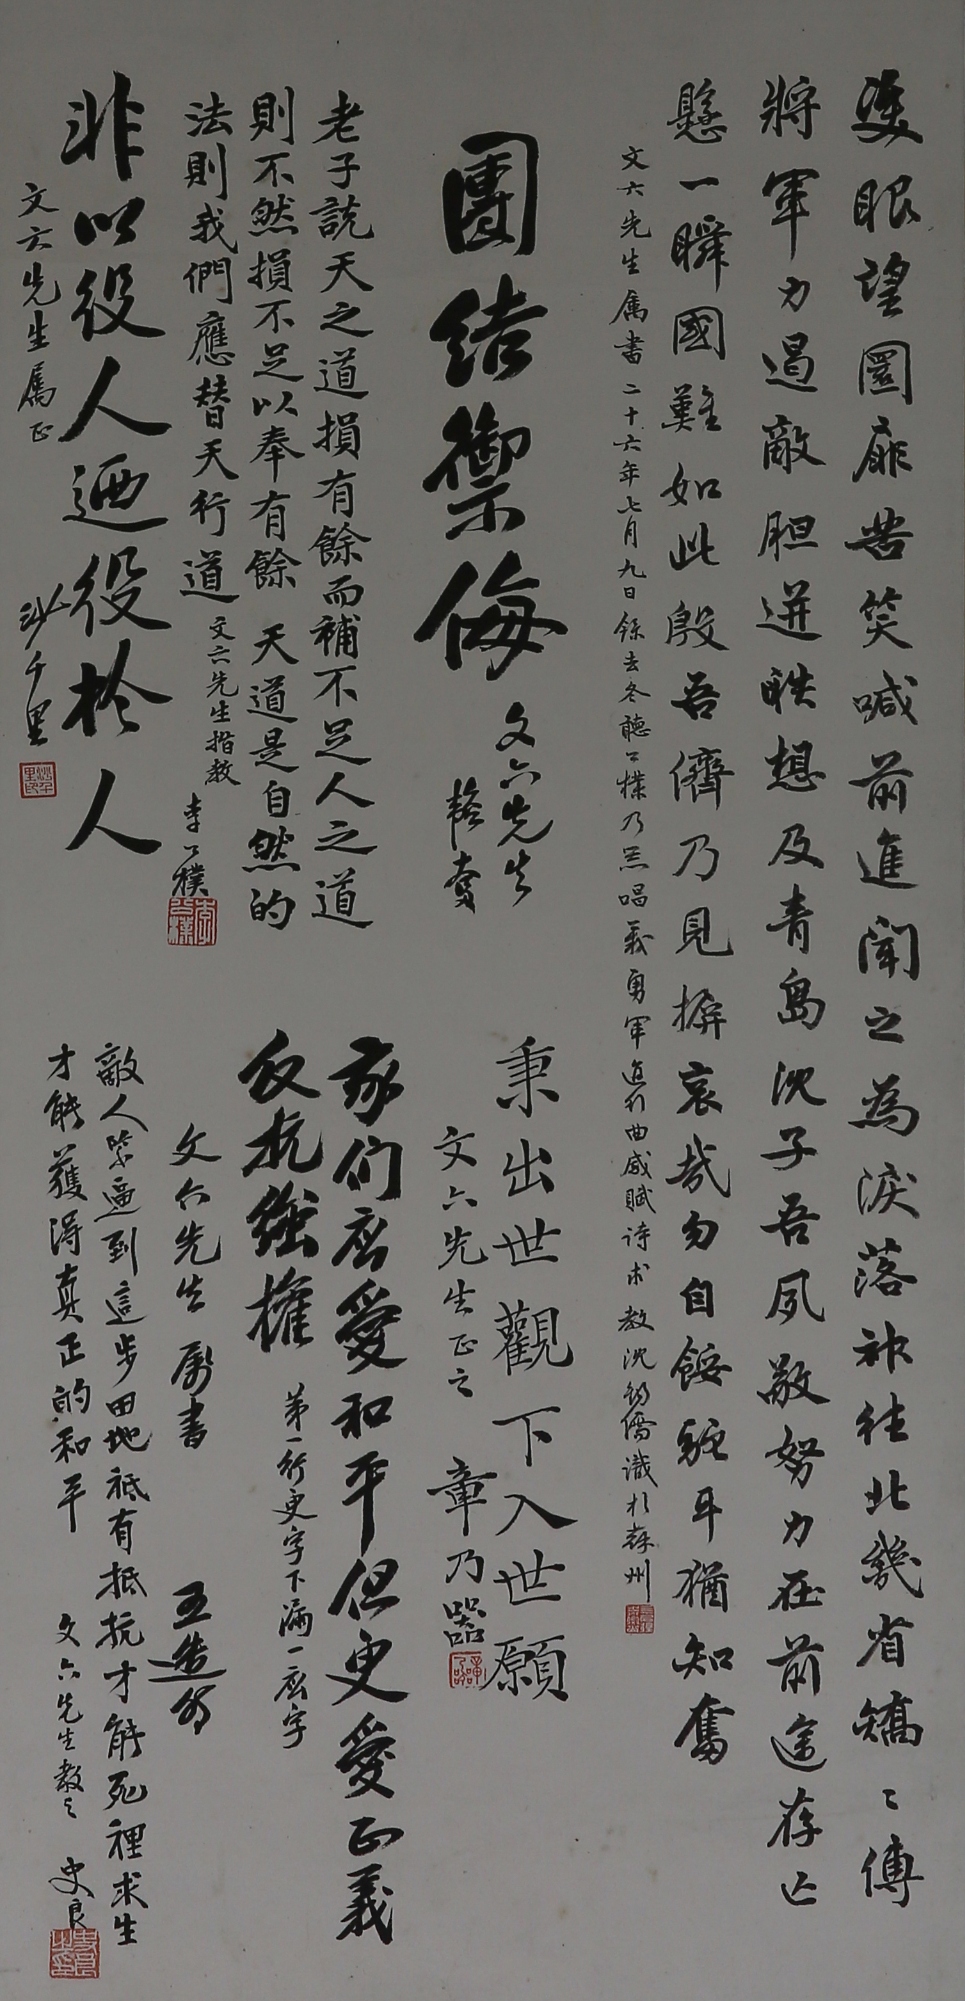 雙眼望圜扉苦笑喊前進聞之為淚落神往北幾省矯〻傅
將軍力遏敵胆迸眣想及青島沈子吾夙敬努力在前途存亡
懸一瞬國難如此殷吾儕乃見擯哀哉勿自餒疲耳猶知奮
文六先生属書二十六年七月九日 錄去冬聽公樸乃器唱義勇軍進行曲感賦诗求教沈鈞儒識於蘇州
團结禦侮
文六先生
韜奮
老子說天之道損有餘而補不足人之道
則不然損不足以奉有餘 天道是自然的
法則我們應替天行道
文六先生指教
李公樸
非以役人迺役於人
文六先生屬正
沙千里
秉出世觀下入世願
文六先生正之
章乃器
我们应爱和平但更爱正義
反抗强權
第一行更字下漏一应字
文六先生 属書
王造时
敵人紧逼到這步田地祗有抵抗才能死裡求生
才能獲得真正的和平
文六先生教之
史良